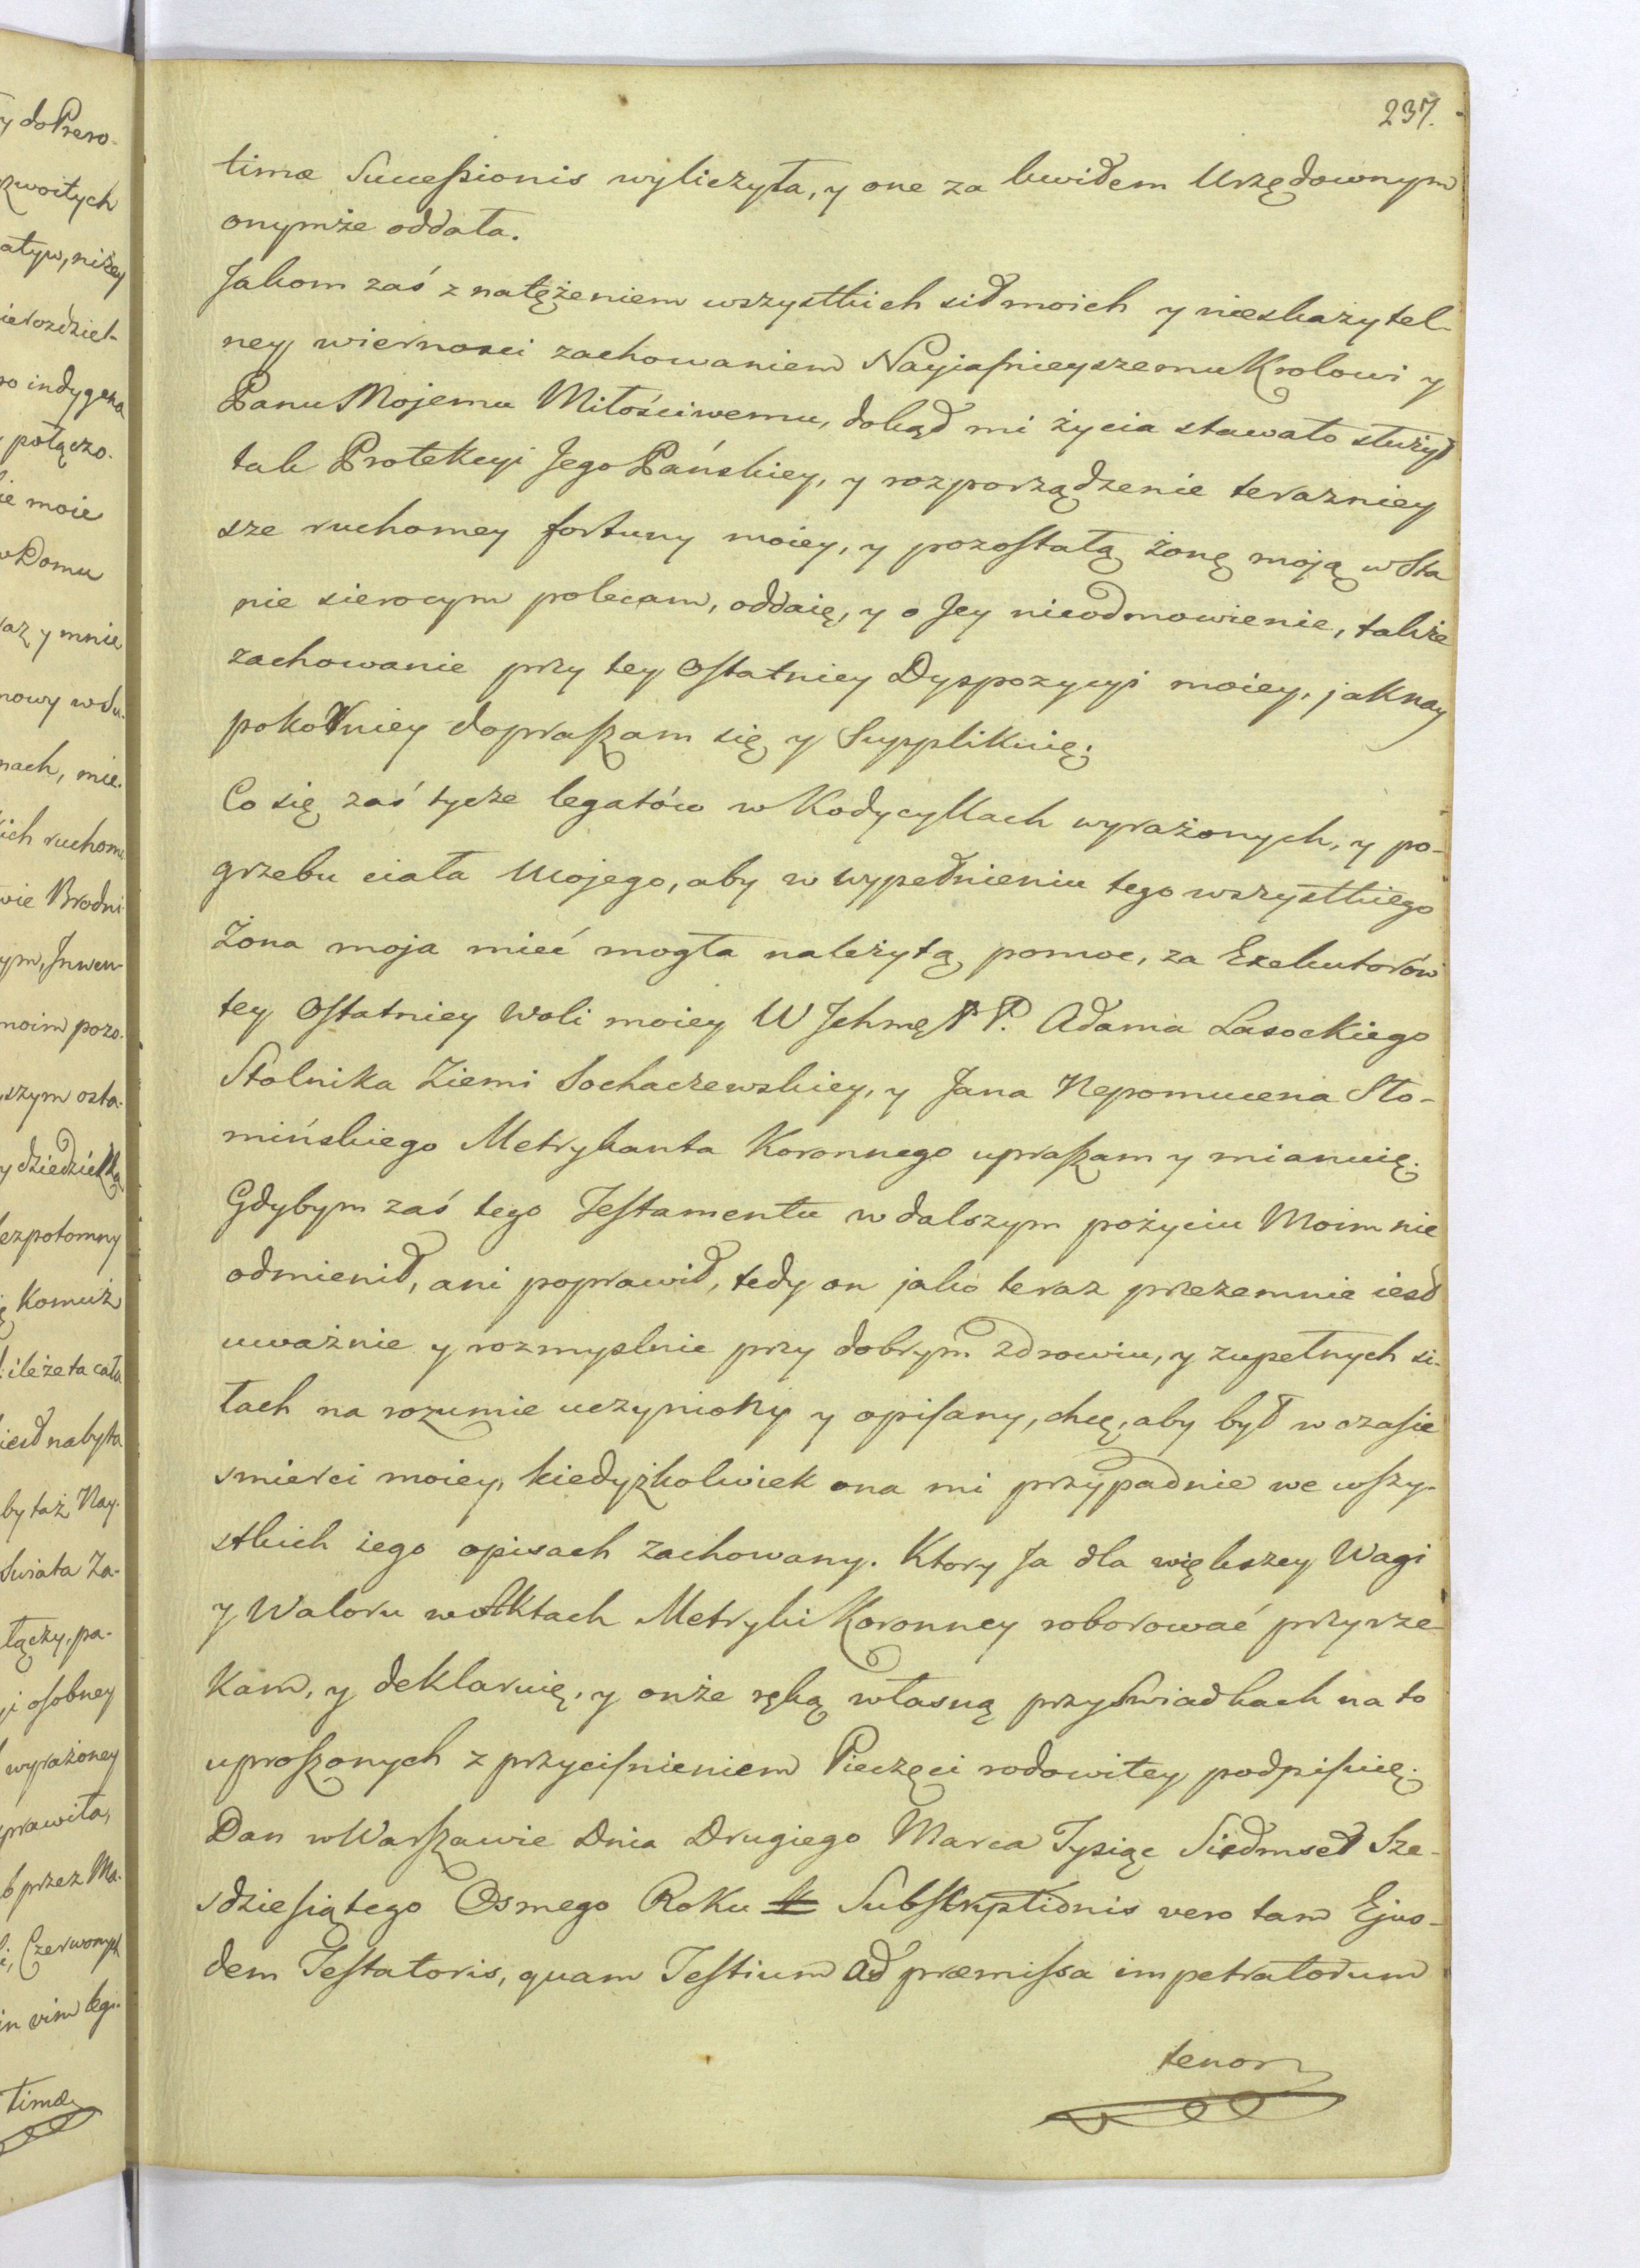 237.
timæ Successionis wyliczyła, y one za kwitem Urzędownym
onymże oddała.
Jakom zaś z natężeniem wszystkich sił moich y nieskazytel-
ney wiernosci zachowaniem Nayiaśnieyszemu Krolowi y
Panu Mojemu Miłościwemu, dokąd mi życia stawało służył
tak Protekcyi Jego Pańskiey, y rozporządzenie terazniey
sze ruchomey fortuny moiey, y pozostałą żonę moją w Sta
nie sierocym polecam, oddaię, y o Jey nieodmowienie, także
zachowanie przy tey Ostatniey Dyspozycyi moiey, jaknay
pokorniey dopraszam się y Supplikuię;
Co się zaś tycze legatów w Kodycyllach wyrażonych, y po-
grzebu ciała Mojego, aby w wypełnieniu tego wszystkiego
Żona moja mieć mogła należytą pomoc, za Exekutorów
tey Ostatniey Woli moiey W Jchmę P P. Adama Lasockiego
Stolnika Ziemi Sochaczewskiey, y Jana Nepomucena Sło-
mińskiego Metrykanta Koronnego upraszam y mianuię.
Gdybym zaś tego Testamentu w dalszym pożyciu Moim nie
odmienił, ani poprawił, tedy on jako teraz przezemnie iest
uważnie y rozmyslnie przy dobrym zdrowiu, y zupełnych si-
łach na rozumie uczyniony y opisany, chcę, aby był w czasie
smierci moiey, kiedyżkolwiek ona mi przypadnie we wszy-
stkich iego opisach zachowany. Ktory Ja dla większey Wagi
y Waloru w Aktach Metryki Koronney roborować przyrze-
kam, y deklaruię, y onże ręką własną przy Swiadkach na to
uproszonych z przyciśnieniem Pieczęci rodowitey podpisuię.
Dan w Warszawie Dnia Drugiego Marca Tysiąc Siedmset Sze-
sdziesiątego Osmego Roku Subskryptionis vero tam Ejus-
dem Testatoris, quam Testium ad præmissa impetratorum
tenor